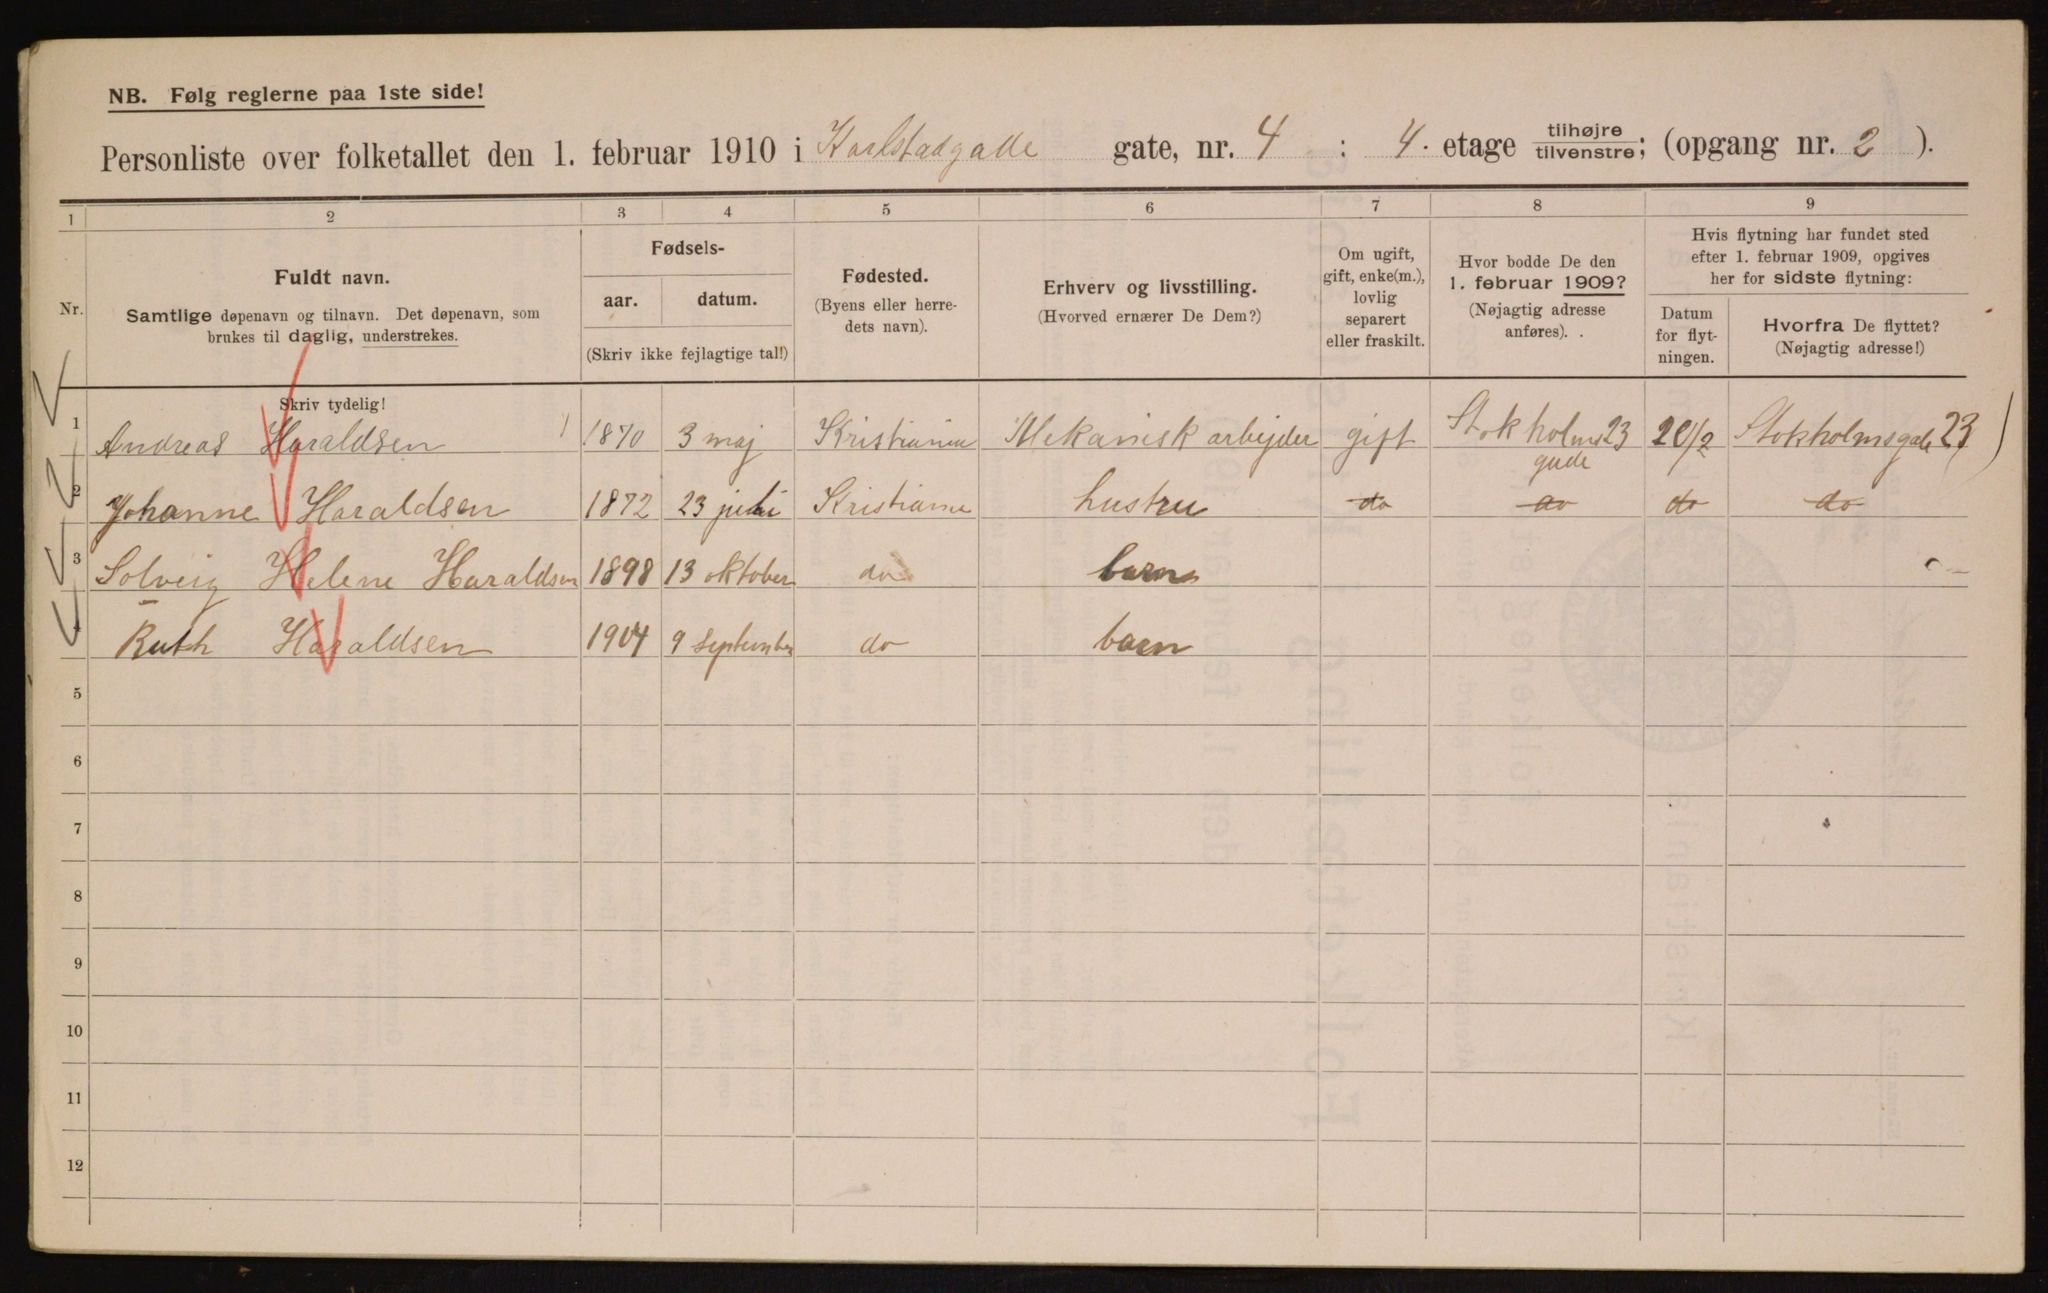 NB. Følg reglerne paa 1ste side!
Personliste over folketallet den 1. februar 1910 i Karlstadgade gate, nr. 4 : 4. etage tilhøjre tilvenstre; (opgang nr. 2 ).
1 2 3 4 5 6 7 8 9
Nr.
Fuldt navn.
Samtlige døpenavn og tilnavn. Det døpenavn, som
brukes til daglig, understrekes.
Fødsels-
aar. datum.
(Skriv ikke fejlagtige tal!)
Fødested.
(Byens eller herre-
dets navn).
Erhverv og livsstilling.
(Hvorved ernærer De Dem?)
Om ugift,
gift, enke(m.),
lovlig
separert
eller fraskilt.
Hvor bodde De den
1. februar 1909?
(Nøjagtig adresse
anføres).
Hvis flytning har fundet sted
efter 1. februar 1909, opgives
her for sidste flytning:
Datum
for flyt-
ningen.
Hvorfra De flyttet?
(Nøjagtig adresse!)
Skriv tydelig!
1 Andreas Haraldsen 1870 3 maj Kristiania Mekanisk arbejder gift Stokholms 23 gade 20/2 Stokholmsgade 23
2 Johanne Haraldsen 1872 23 juli Kristiania hustru do do do do
3 Solveig Helene Haraldsen 1898 13 oktober do barn
4 Ruth Haraldsen 1904 9 September do barn
5
6
7
8
9
10
11
12